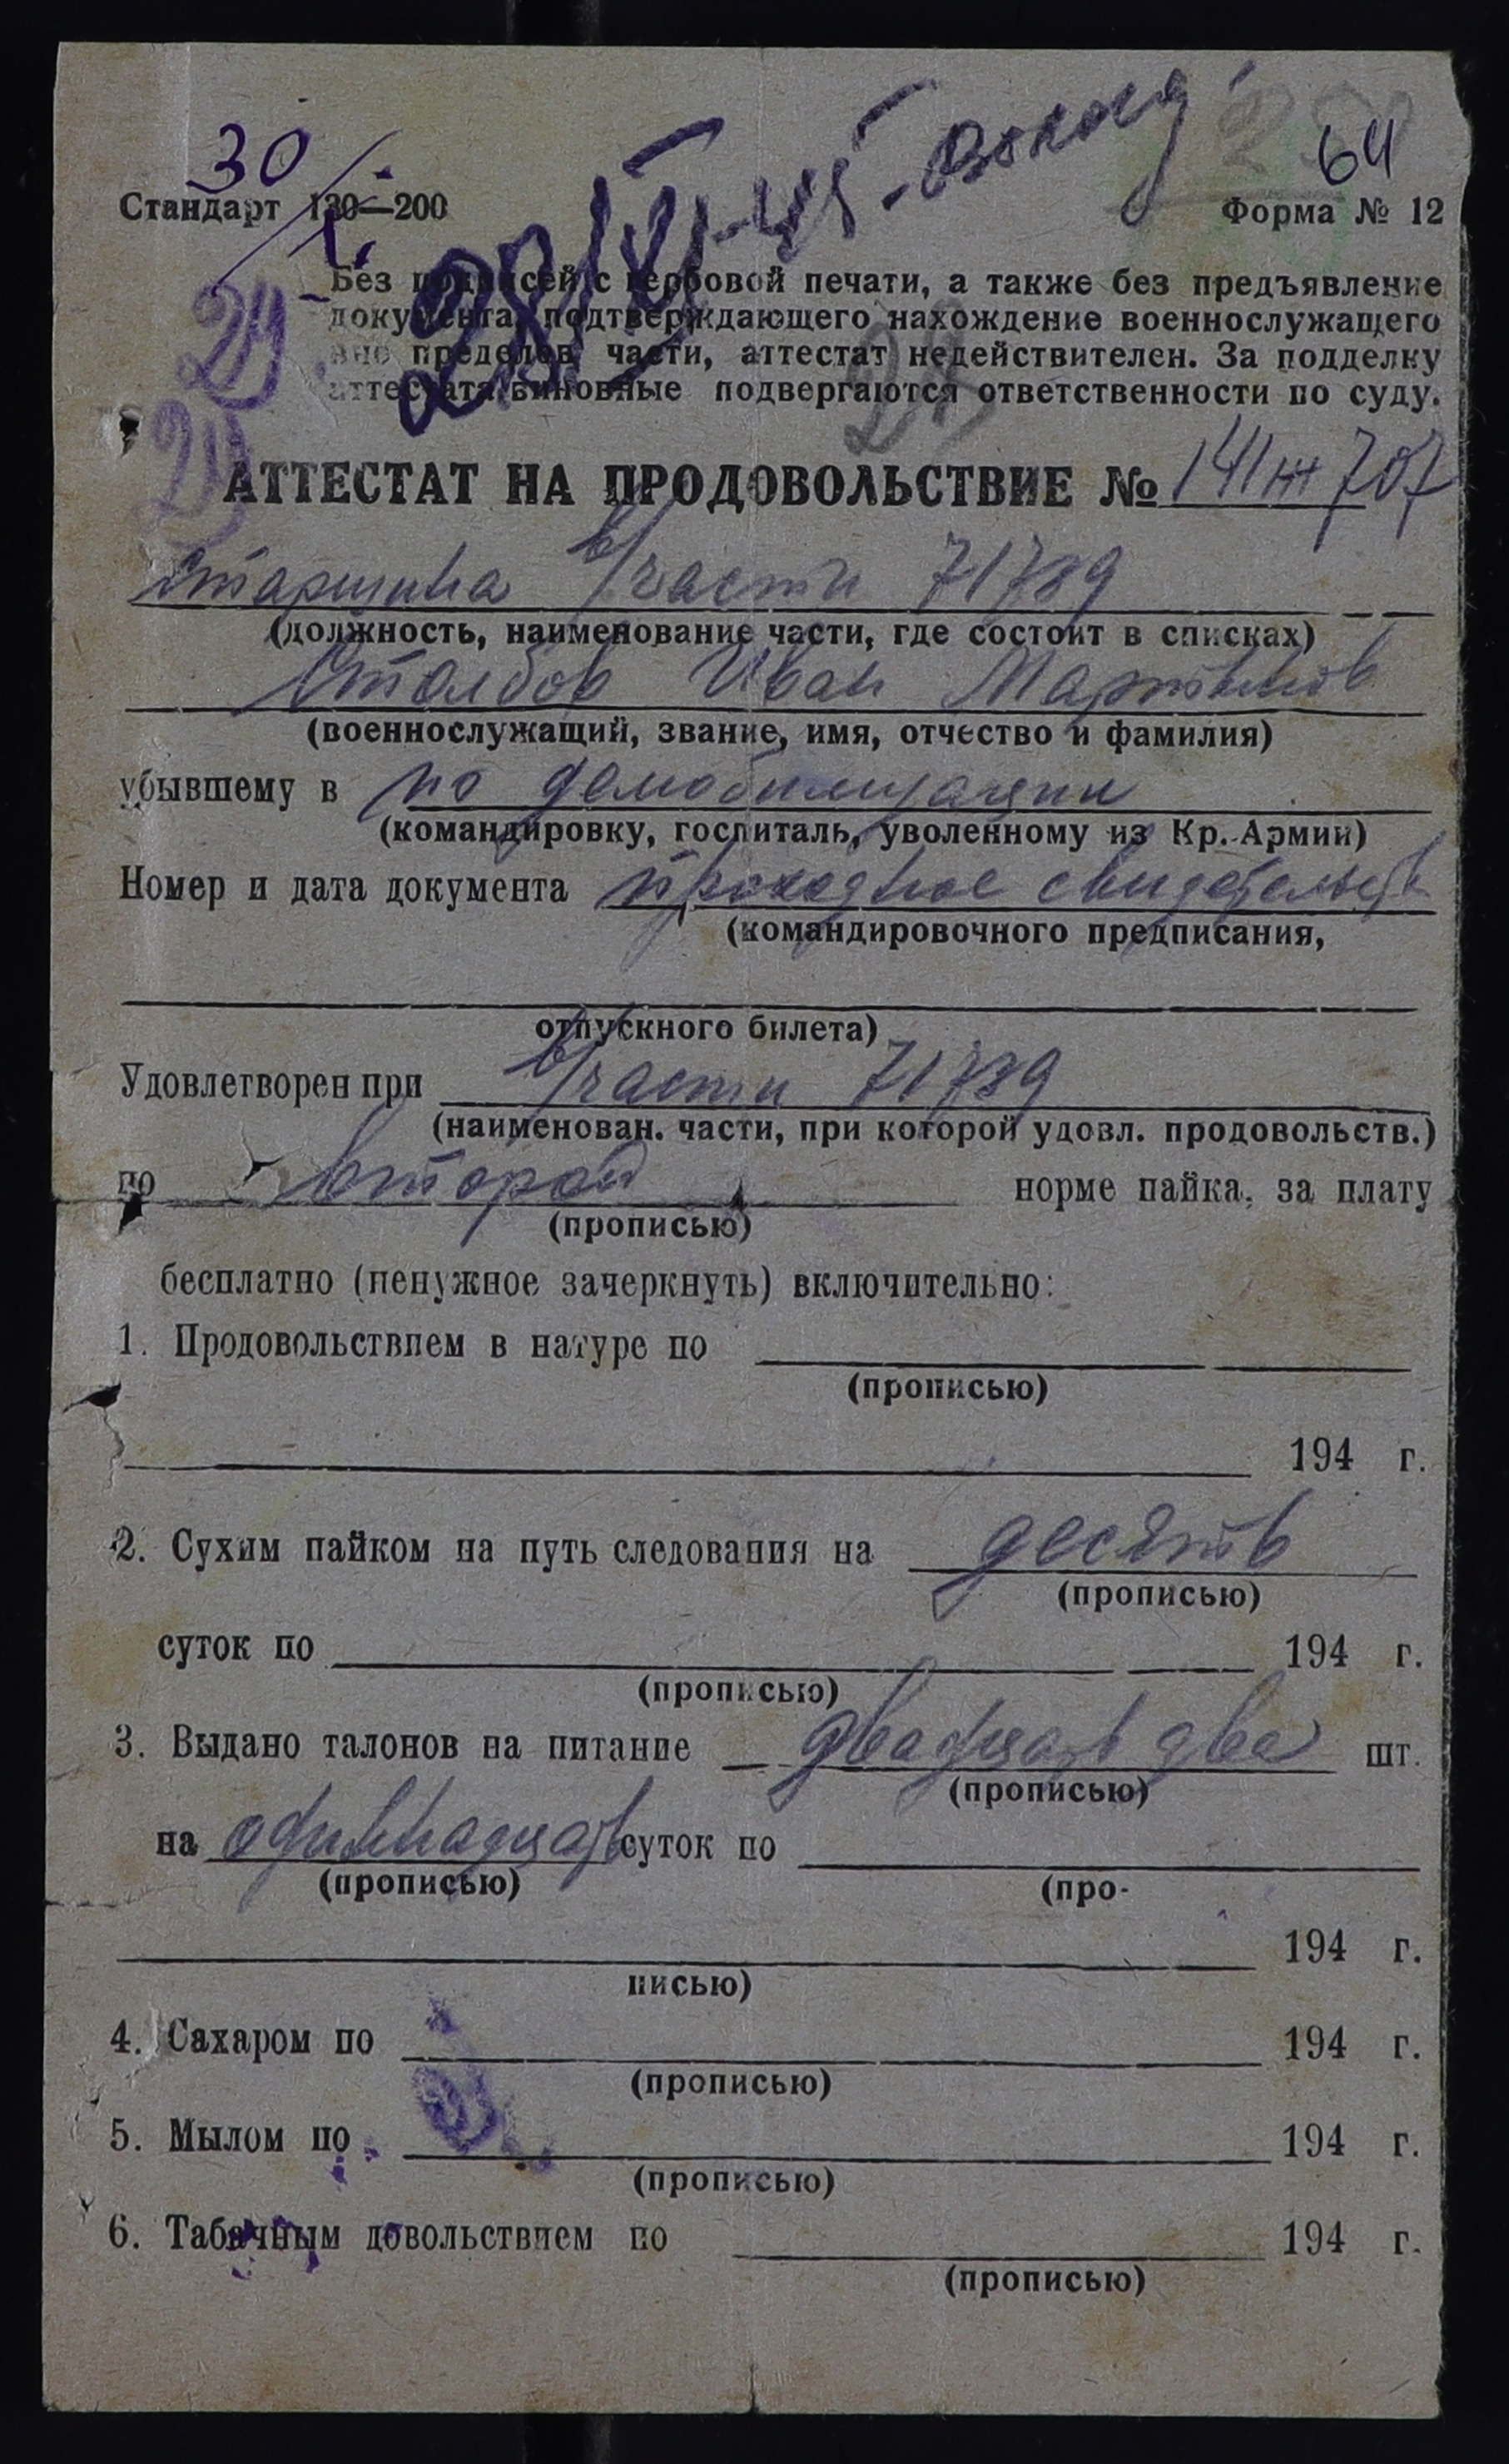 30
64
Стандарт 130—200
Форма № 12
Без подписей с гербовой печати, а также без предъявление
документа, подтверждающего нахождение военнослужащего
вне пределов части, аттестат недействителен. За подделку
аттестата виновные подвергаются ответственности по суду.
29
29
АТТЕСТАТ НА ПРОДОВОЛЬСТВИЕ № 707
старшина в/части 71789
(должность, наименование части, где состоит в списках)
Столбов Иван
(военнослужащий, звание, имя, отчество и фамилия)
убывшему в по демобилизации
(командировку, госпиталь, уволенному из Кр. Армии)
Номер и дата документа проходное свидетельств
(командировочного предписания,
отпускного билета)
Удовлетворен при в/части 71789
(наименован. части, при которой удовл. продовольств.)
по второй норме пайка, за плату
(прописью)
бесплатно (ненужное зачеркнуть) включительно:
1. Продовольствием в натуре по
(прописью)
194 г.
2. Сухим пайком на путь следования на десять
(прописью)
суток по 194 г.
(прописью)
3. Выдано талонов на питание двадцать два шт.
(прописью)
на одиннадцать суток по
(прописью) (про-
194 г.
писью)
4. Сахаром по 194 г.
(прописью)
5. Мылом по 194 г.
(прописью)
6. Табачным довольствием по 194 г.
(прописью)